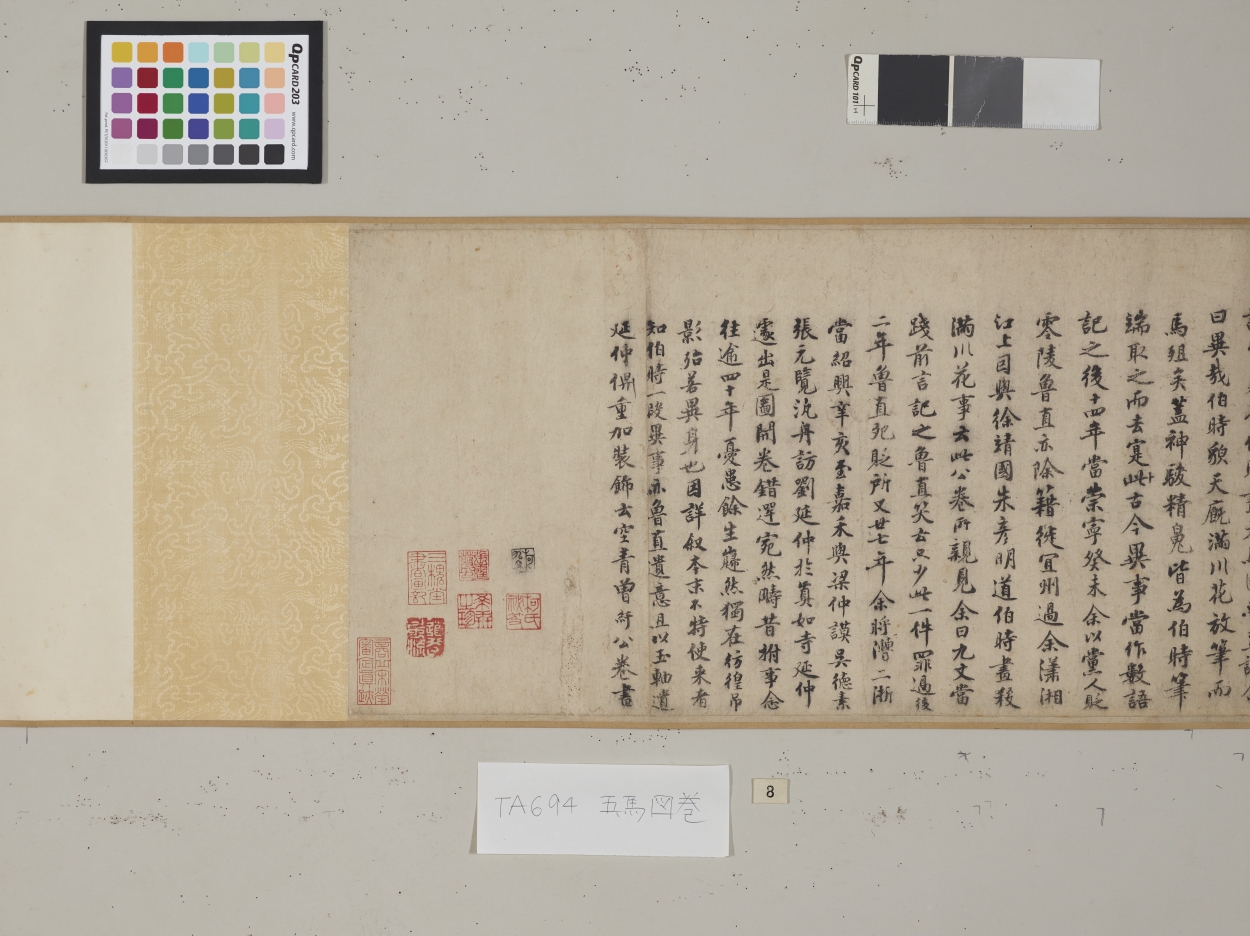 QPCARD 203
www.qpcard.com
QPCARD 101
曰異哉伯時貌天廐滿川花放筆而
馬殂矣蓋神駿精魄皆為伯時筆
端取之而去寔此古今異事當作數語
記之後十四年當崇寧癸未余以黨人貶
零陵魯直亦除籍徙宜州過余瀟湘
江上因與徐靖國朱彥明道伯時畫殺
滿川花事云此公卷所親見余曰九丈當
踐前言記之魯直笑云只少此一件罪過後
二年魯直死貶所又廿七年余將漕二浙
當紹興辛亥至嘉禾與梁仲謨吳德素
張元覽汎舟訪劉延仲於真如寺延仲
遽出是圖開卷錯愕宛然疇昔拊事念
往逾四十年憂患餘生巋然獨在彷徨弔
影殆若異身也因詳敘本末不特使來者
知伯時一段異事亦魯直遺意且以玉軸遺
延仲俾重加裝飾云空青曾紆公卷書
TA694 五馬図巻
8